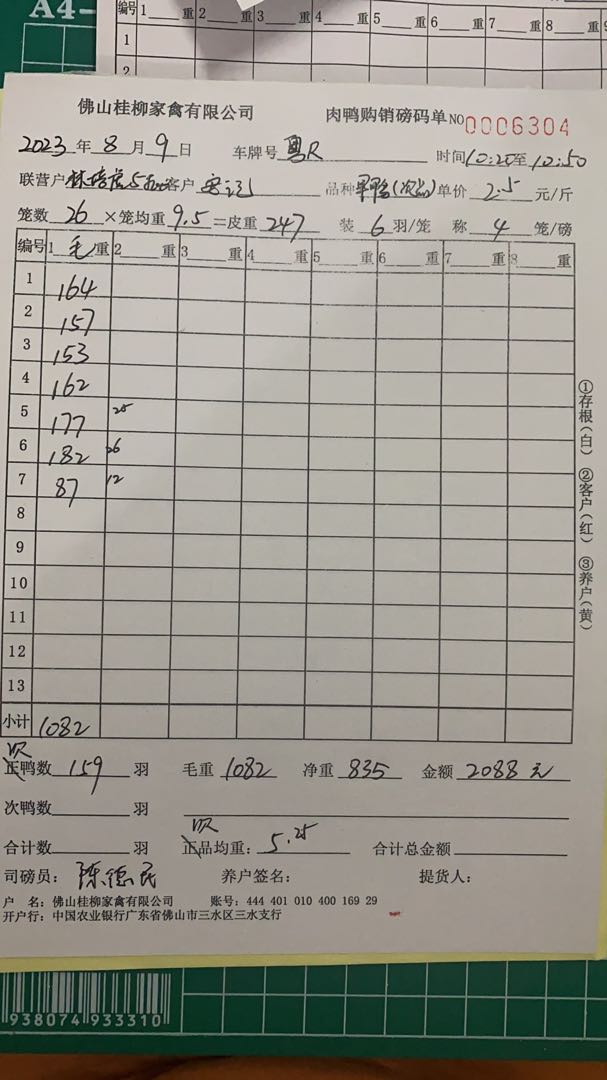 A4-
编号 1 重 2 重 3 重 4 重 5 重 6 重 7 重 8 重
1
2
佛山桂柳家禽有限公司 肉鸭购销磅码单 NO 0006304
2023 年 8 月 9 日 车牌号 粤R 时间 10:20 至 10:50
联营户 客户 品种 (次品) 单价 2.5 元/斤
笼数 26 ×笼均重 9.5 =皮重 247 装 6 羽/笼 称 4 笼/磅
编号 1 毛 重 2 重 3 重 4 重 5 重 6 重 7 重 8 重
1 164
2 157
3 153
4 162
5 177 25
6 182 26
7 87 12
8
9
10
11
12
13
小计 1082
①存根(白) ②客户(红) ③养户(黄)
次
正鸭数 159 羽 毛重 1082 净重 835 金额 2088 元
次鸭数 羽
次
合计数 羽 正品均重: 5.25 合计总金额
司磅员: 陈德民 养户签名: 提货人:
户 名: 佛山桂柳家禽有限公司 账号: 444 401 010 400 169 29
开户行: 中国农业银行广东省佛山市三水区三水支行
938074 933310